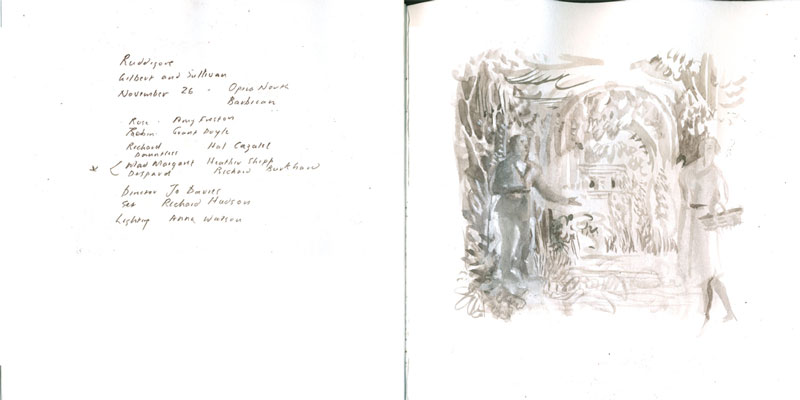 Ruddigore
Gilbert and Sullivan
November 26 - Opera North
Barbican
Rose - Amy Freston
Robin - Grant Doyle
Richard Hal Cazalet
Dauntless
* Mad Margaret Heather Shipp
Despard Richard Burkhard
Director Jo Davies
Set Richard Hudson
Lighting Anna Watson